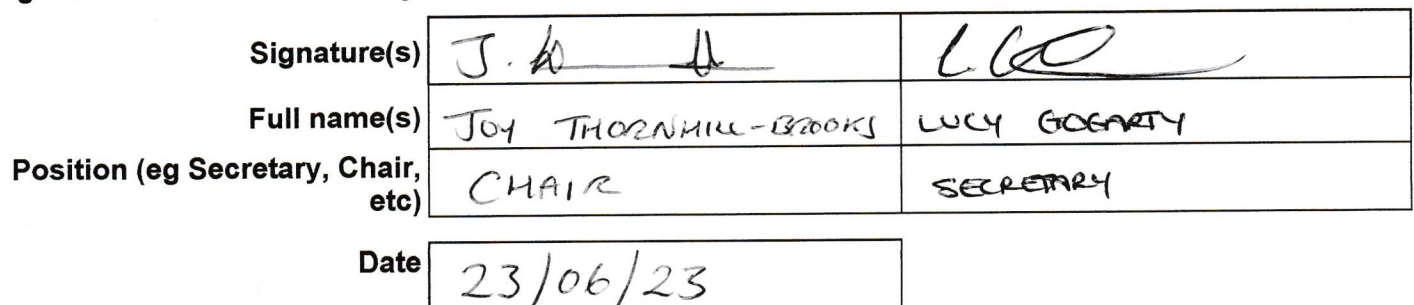 Signature(s)
Full name(s) JOY THORNHILL-BROOKS LUCY GOGARTY
Position (eg Secretary, Chair, etc) CHAIR SECRETARY
Date 23/06/23